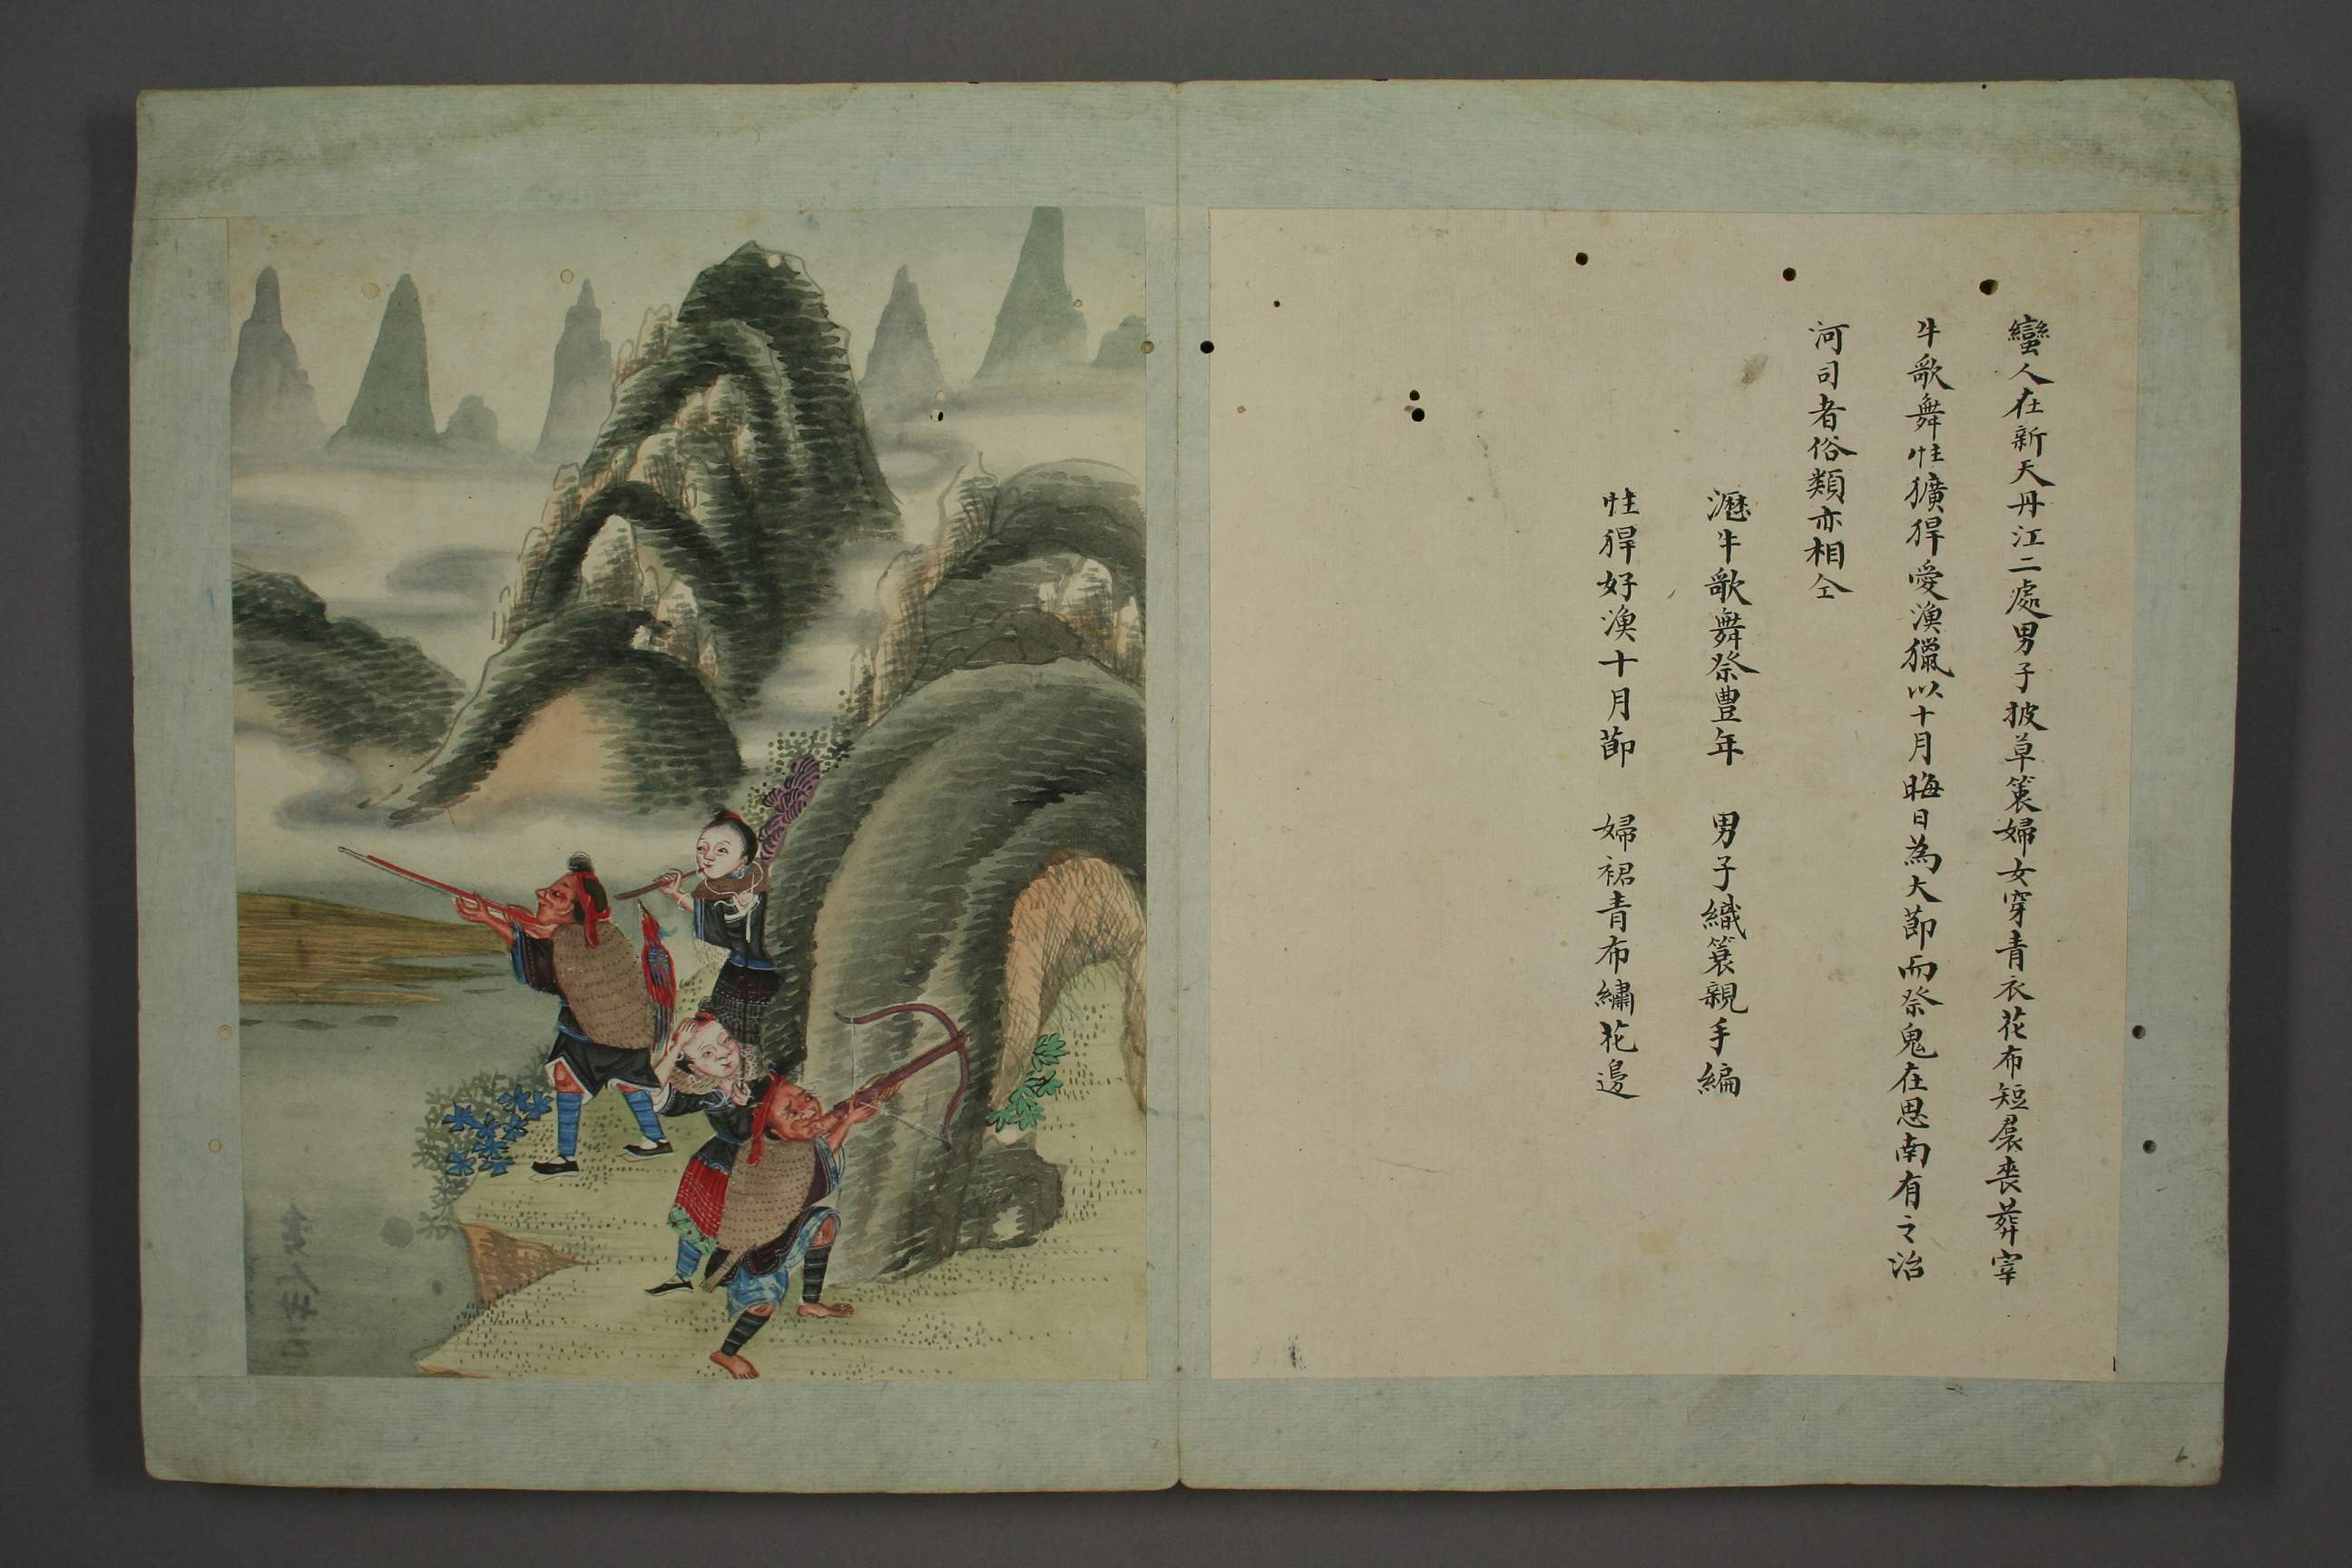 蠻人在新天丹江二處男子披草簑婦女穿青衣花布短裠喪葬宰
牛歌舞性獷猂愛漁獵以十月晦日為大節而祭鬼在思南有之治
河司者俗類亦相仝
瀝牛歌舞祭豊年　男子織簑親手編
性猂好漁十月節　婦裙青布繡花邉